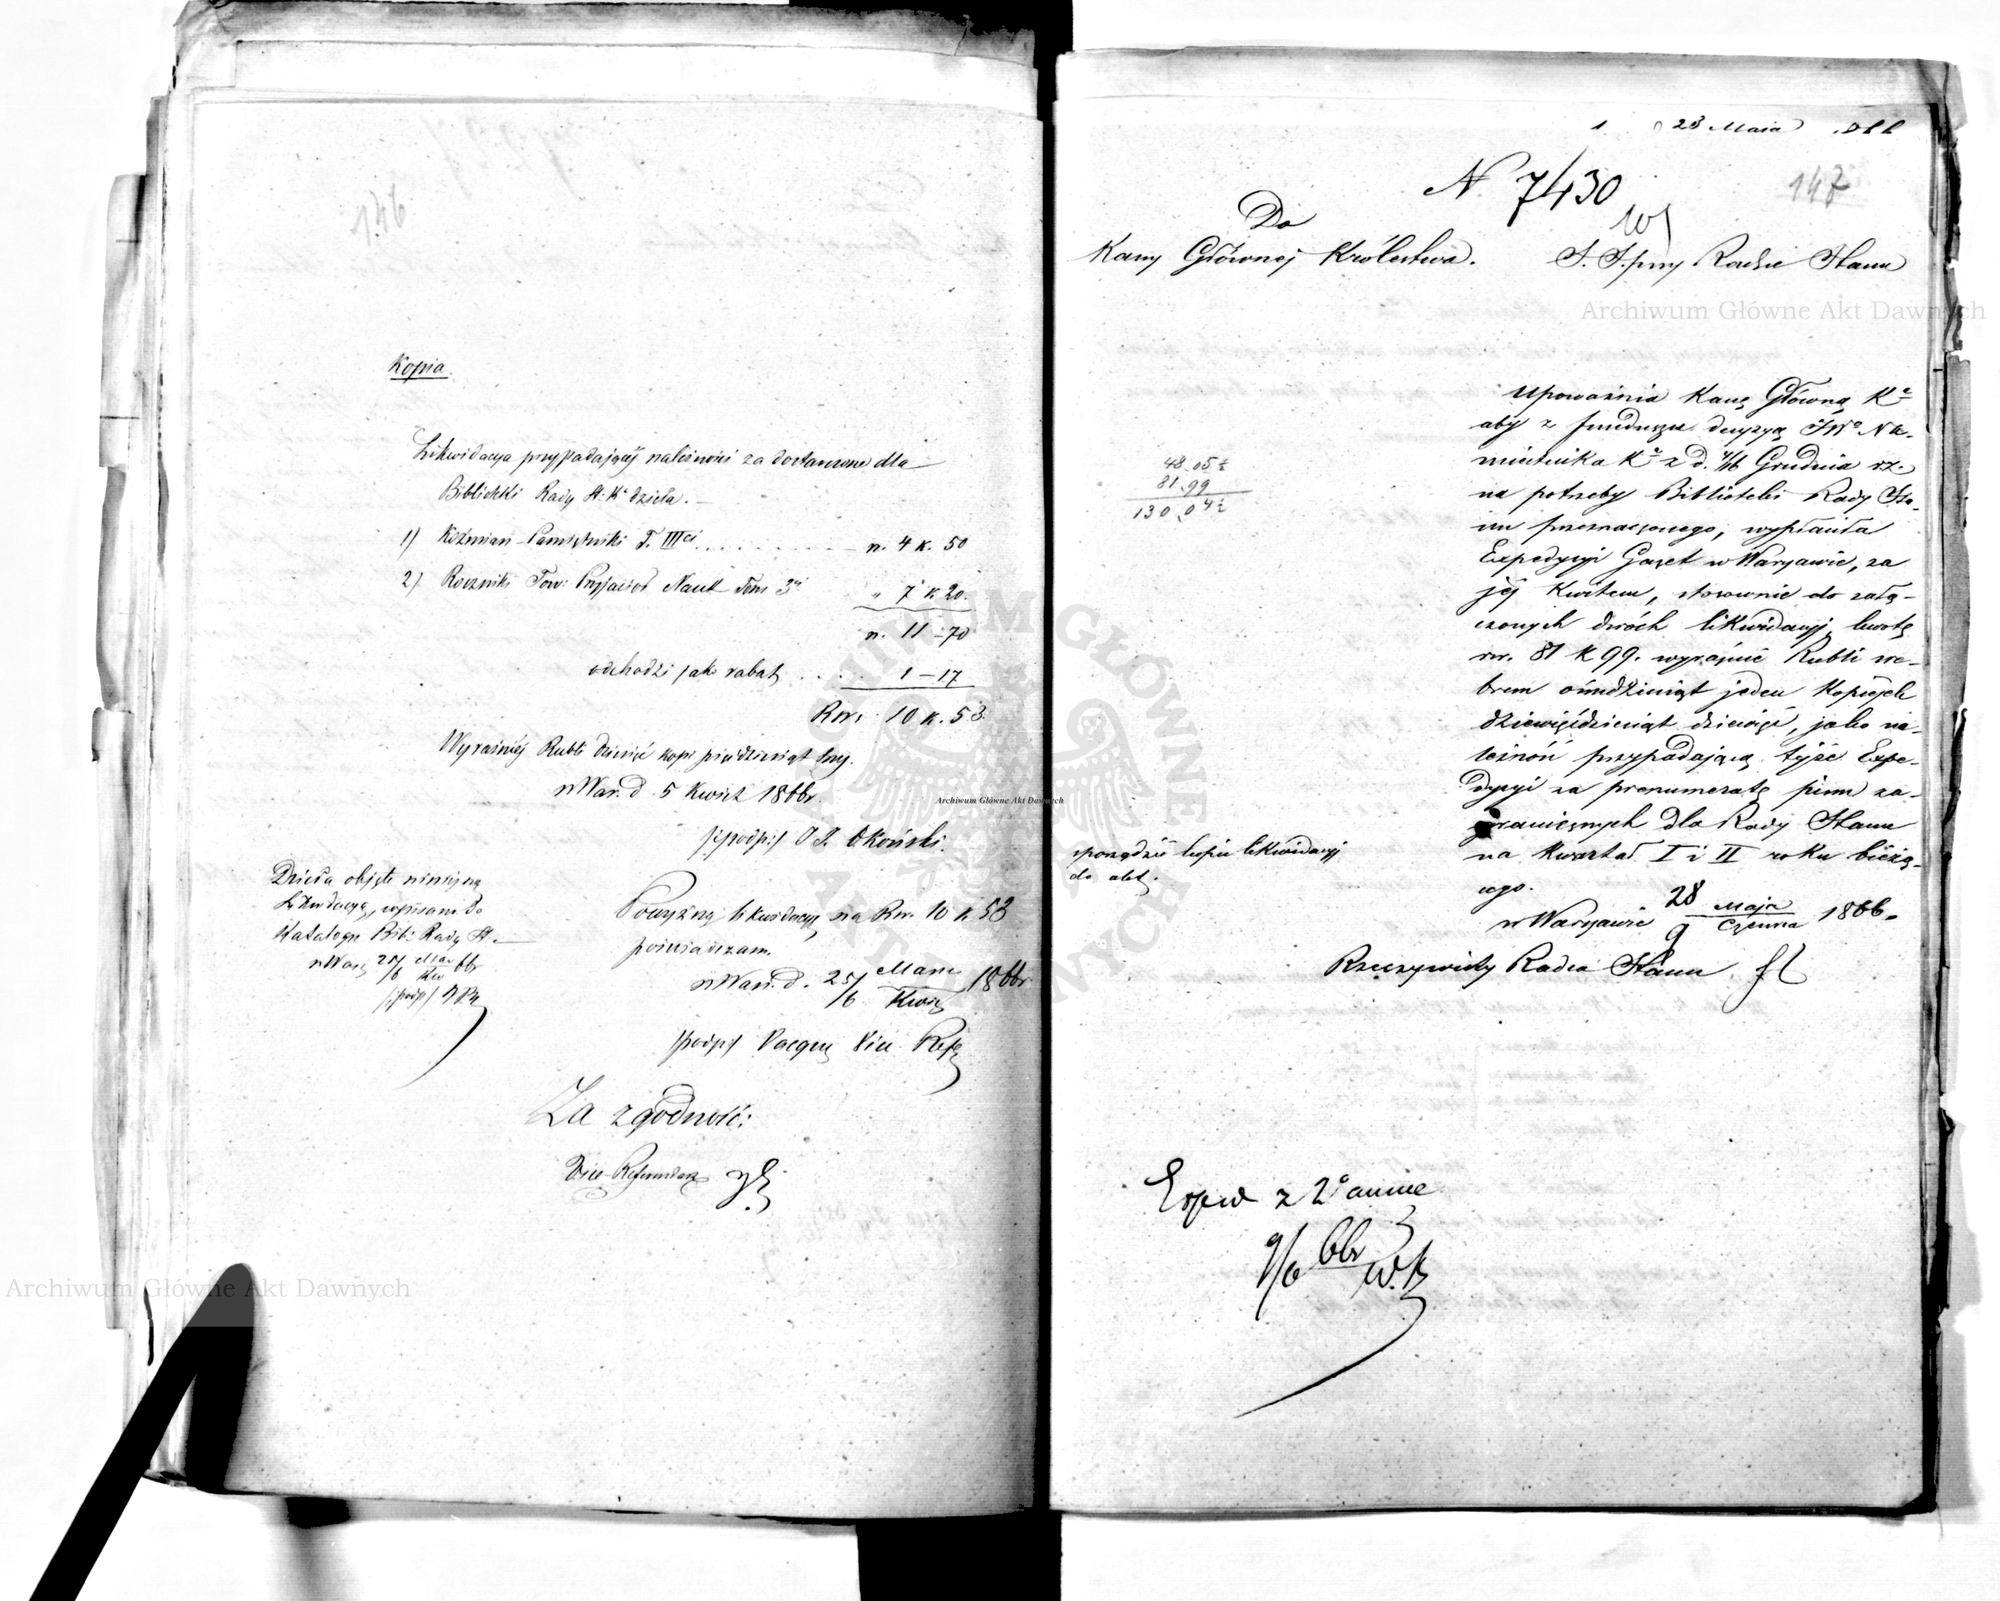 Kopia.
Likwidacya przypadającéj należności za dostarczone dla
Biblioteki Rady St: Ka dzieła.
1) Koźmian Pamiętniki T. III ci . . . . . . . r. 4 k. 50
2) Roczniki Tow: Przyjaciół Nauk Tom 3ci " 7 k 20.
r. 11 – 70
odchodzi jako rabat . . . . 1 – 17
Rsr. 10 k. 53
Wyraźniéj Rubli dziesięć kopi pięćdziesiąt trzy.
w War. d. 5 Kwiet 1866r.
/podpis/ Okoński.
Dzieła objęte niniejszą
Likwidacyą, wpisano do
Katalogu Bibl: Rady St.
w War. 25/6 Mar/Kw 66r
/podp/
Powyższą likwidacyą na Rsr. 10 k. 53
poświadczam.
w War. d. 25/6 Marca/Kwiet 1866r
/podpis/ Vice Refer
Za zgodność:
Vice-Referendarz
146
23 Maja
N 7430
147
Do
Kassy Głównéj Królestwa.
S. S. przy Radzie Stanu
Upoważnia Kassę Główną Ka
aby z funduszu decyzyą JWo Na-
miestnika Ka z d. 4/16 Grudnia rz.
na potrzeby Biblioteki Rady Sta-
nu przeznaczonego, wypłaciła
Expedycyi Gazet w Warszawie, za
jéj Kwitem, stosownie do załą-
czonych dwóch likwidacyj, kwotę
rsr. 81 k 99. wyraźnie Rubli sre-
brem ośmdziesiąt jeden kopiejek
dziewięćdziesiąt dziewięć, jako na-
leżność przypadającą tejże Expe-
dycyi za prenumeratę pism za-
granicznych dla Rady Stanu
na kwartał I i II roku bieżą-
cego.
48 05½
81 99
130 04½
sporządzić kopie likwidacyj
do akt.
w Warszawie 28/9 Maja/Czerwca 1866.
Rzeczywisty Radca Stanu
Exped z 2 annex
9/6 66r
Archiwum Główne Akt Dawnych
Archiwum Główne Akt Dawnych
Archiwum Główne Akt Dawnych
ARCHIWUM GŁÓWNE AKT DAWNYCH